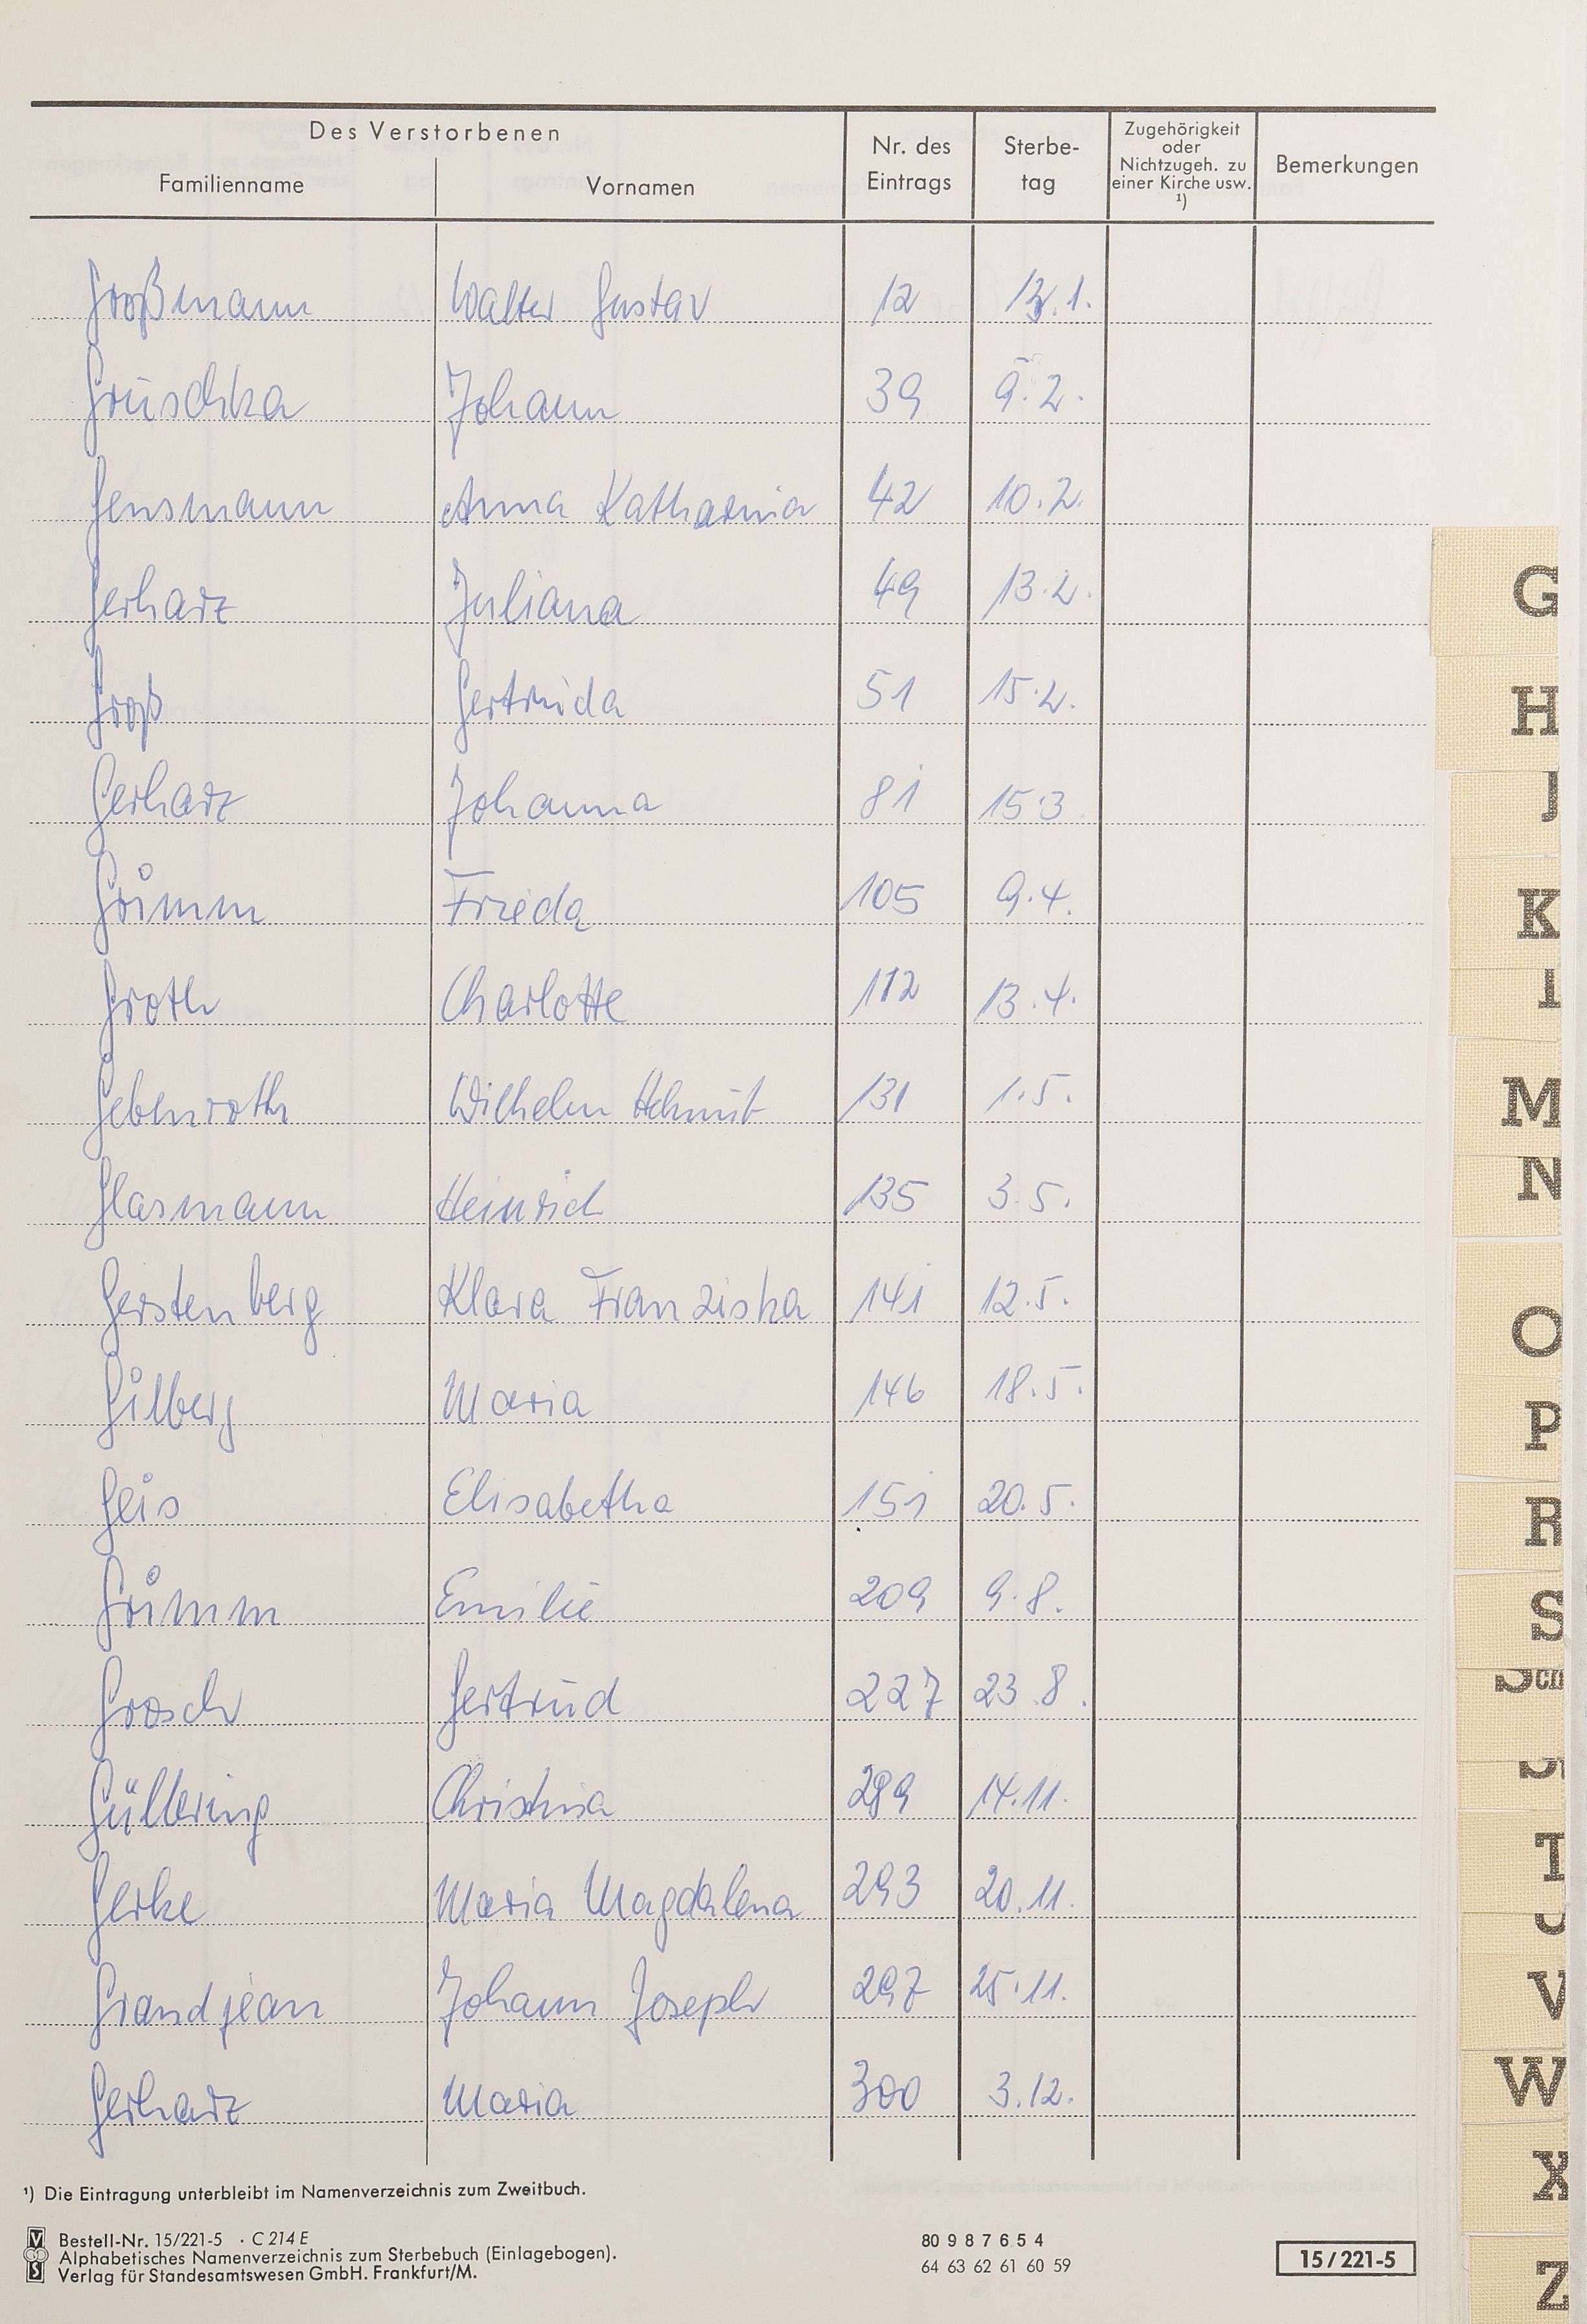 Des Verstorbenen
Familienname Vornamen Nr. des Eintrags Sterbe-tag Zugehörigkeit oder Nichtzugeh. zu einer Kirche usw. ¹) Bemerkungen
Großmann Walter Gustav 12 1.
Grüschka Johann 39 9.2.
Gensmann Anna Katharina 42 10.2.
Gerharz Juliana 49 13.2.
Groß Gertruda 51 15.2.
Gerharz Johanna 81 15.3
Grimm Frieda 105 9.4.
Groth Charlotte 112 13.4.
Gebenroth Wilhelm Helmut 131 1.5.
Glasmann Heinrich 135 3.5.
Gerstenberg Klara Franziska 141 12.5.
Gilberg Maria 146 18.5.
Geis Elisabetha 151 20.5.
Grimm Emilie 209 9.8.
Grosch Gertrud 227 23.8.
Güllering Christina 289 14.11.
Gerke Maria Magdalena 293 20.11.
Grandjean Johann Joseph 297 25.11.
Gerharz Maria 300 3.12.
¹) Die Eintragung unterbleibt im Namenverzeichnis zum Zweitbuch.
Bestell-Nr. 15/221-5 · C 214 E
Alphabetisches Namenverzeichnis zum Sterbebuch (Einlagebogen).
Verlag für Standesamtswesen GmbH. Frankfurt/M.
80 9 8 7 6 5 4
64 63 62 61 60 59
15/221-5
G
H
J
K
M
N
O
P
R
S
Sch
T
V
W
X
Z